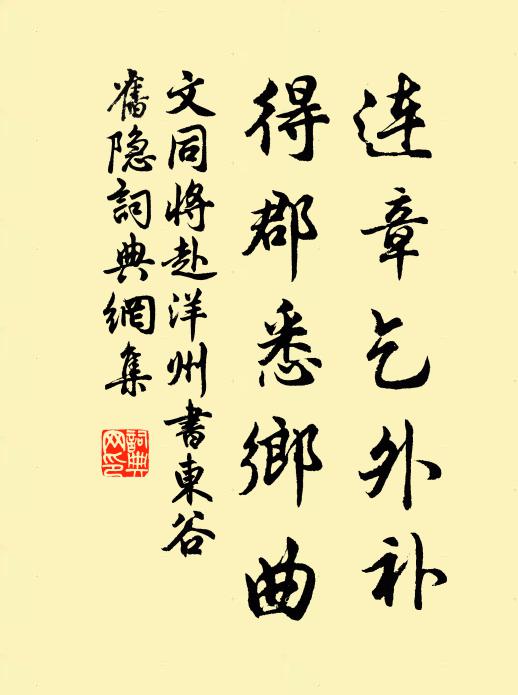 连章乞外补
得郡悉鄉曲
文同将赴洋州書東谷
舊隐詞典網集
詞典網印